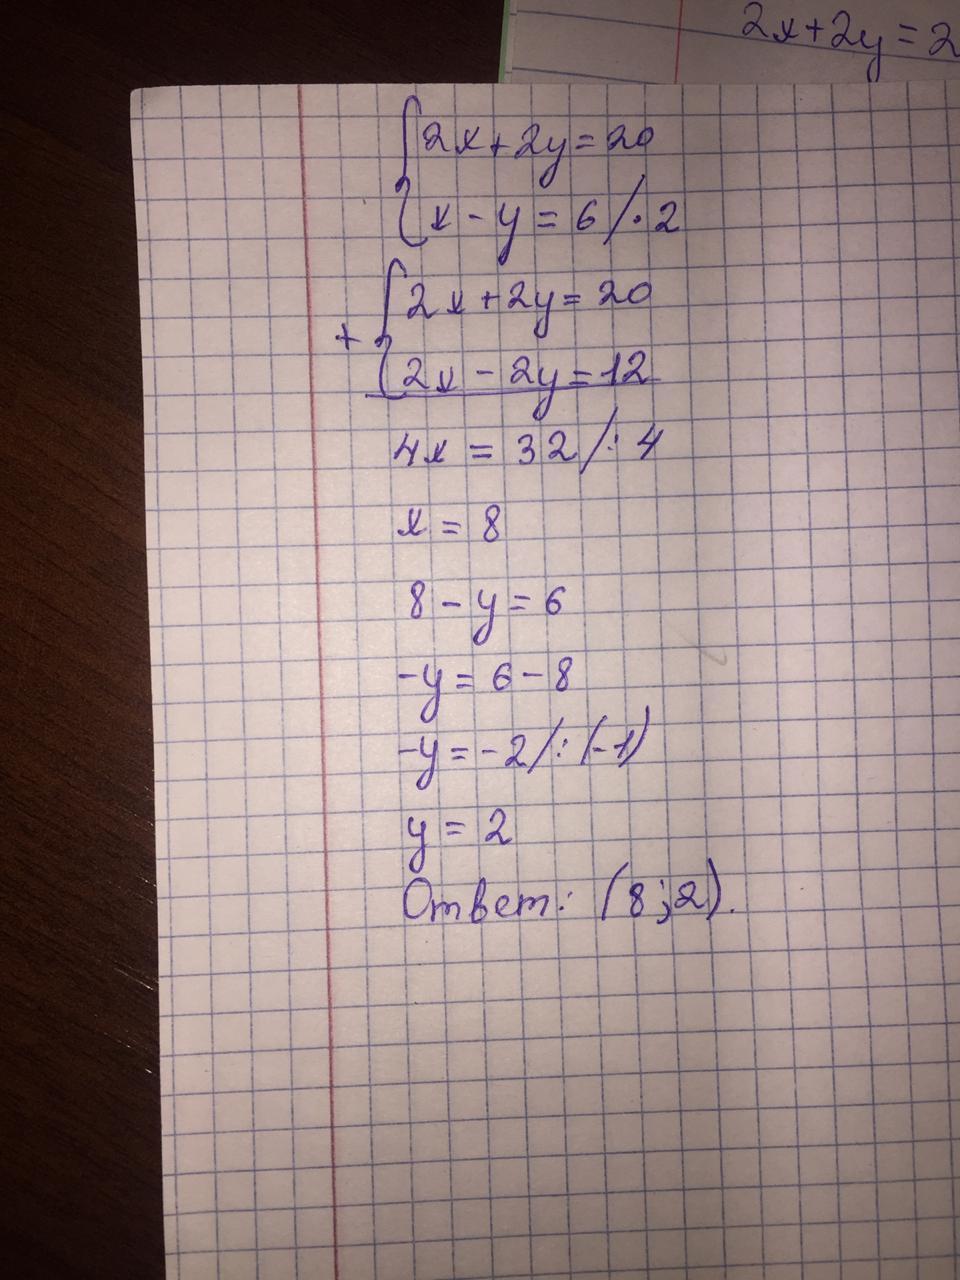 2x+2y=2
{2x+2y=20
{x-y=6/·2
{2x+2y=20
+
{2x-2y=12
4x=32/:4
x=8
8-y=6
-y=6-8
-y=-2/:(-1)
y=2
Ответ: (8;2).